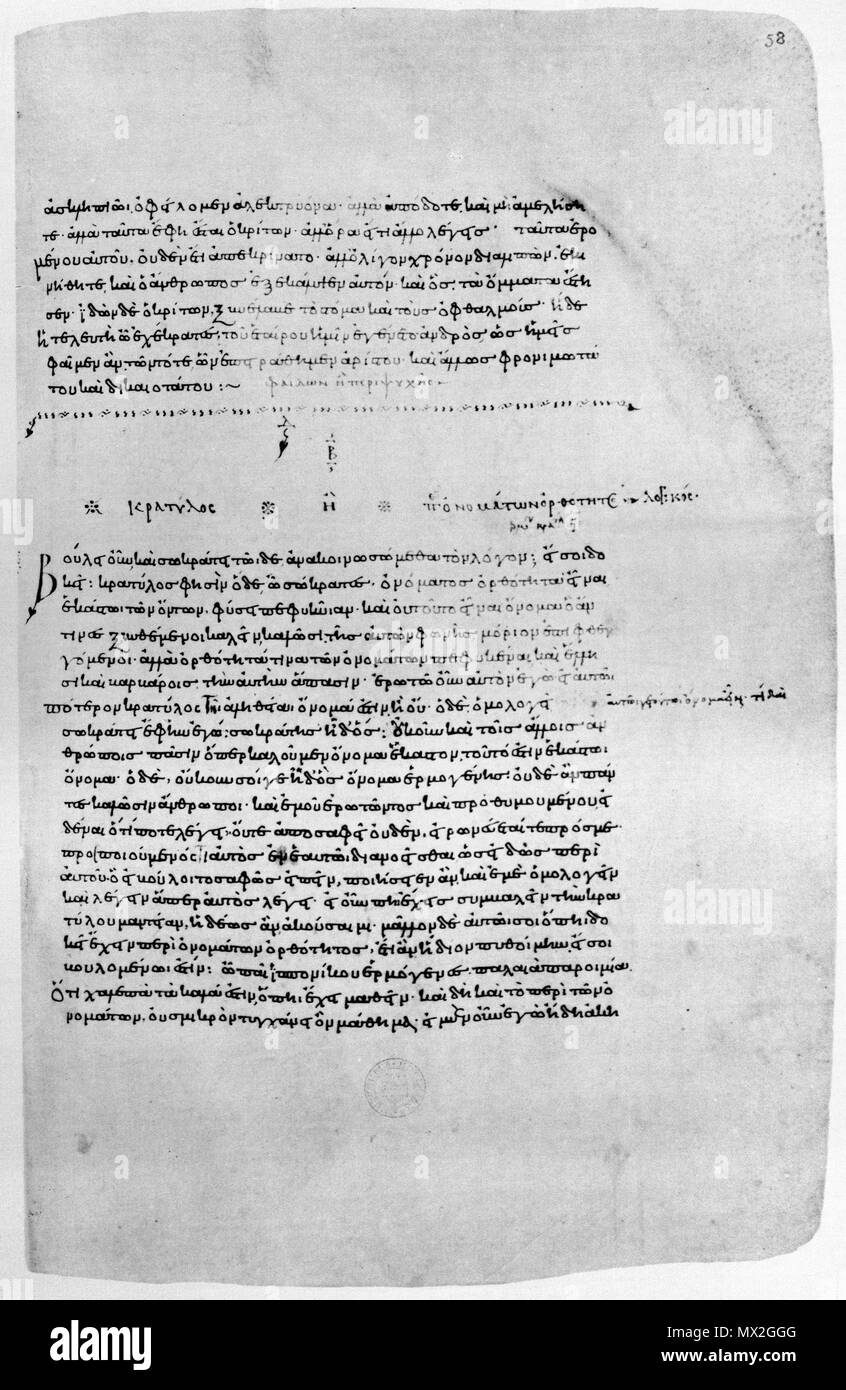 58
ἀσκληπιῶι ὀφείλομεν ἀλεκτρυόνα· ἀλλὰ ἀπόδοτε, καὶ μὴ ἀμελήση
τε· ἀλλὰ ταῦτα ἔφη ἔσται ὁ κρίτων· ἀλλ' ὅρα εἴ τι ἄλλο λέγεις· ταῦτα ἐρο
μένου αὐτοῦ, οὐδὲν ἔτι ἀπεκρίνατο· ἀλλ' ὀλίγον χρόνον διαλιπὼν, ἐκι
νήθη τε, καὶ ὁ ἄνθρωπος ἐξεκάλυψεν αὐτόν· καὶ ὃς τὰ ὄμματα ἔστη
σεν· ἰδὼν δὲ ὁ κρίτων, ξυνέλαβε τὸ στόμα καὶ τοὺς ὀφθαλμούς· ἥδε
ἡ τελευτὴ ὦ ἐχέκρατες, τοῦ ἑταίρου ἡμῖν ἐγένετο ἀνδρὸς, ὡς ἡμεῖς
φαῖμεν ἂν, τῶν τότε ὧν ἐπειράθημεν ἀρίστου· καὶ ἄλλως φρονιμωτά
του καὶ δικαιοτάτου :~ φαίδων ἢ περὶ ψυχῆς
Β
ΚΡΑΤΥΛΟΣ Ἢ π ὀνομάτων ὀρθότητος λογικός·
Βούλει οὖν καὶ σωκράτει τῶιδε ἀνακοινωσώμεθα τὸν λόγον; εἴ σοι δο
κεῖ: κρατύλος φησὶν ὅδε ὦ σώκρατες, ὀνόματος ὀρθότητα εἶναι
ἑκάστωι τῶν ὄντων, φύσει πεφυκυῖαν· καὶ οὐ τοῦτο εἶναι ὄνομα ὃ ἄν
τινες ξυνθέμενοι καλεῖν καλῶσι, τῆς αὐτῶν φωνῆς μόριον ἐπιφθεγ
γόμενοι· ἀλλὰ ὀρθότητά τινα τῶν ὀνομάτων πεφυκέναι καὶ ἕλλη
σι καὶ βαρβάροις τὴν αὐτὴν ἅπασιν· ἐρωτῶ οὖν αὐτὸν ἐγὼ εἰ αὐτῶι
πότερον κρατύλος τῆι ἀληθείαι ὄνομά ἐστιν ἢ οὔ· ὁ δὲ ὁμολογεῖ
σωκράτει ἔφην ἐγώ; σωκράτης ἦ δ' ὅς; οὐκοῦν καὶ τοῖς ἄλλοις ἀν
θρώποις πᾶσιν ὅπερ καλοῦμεν ὄνομα ἕκαστον, τοῦτό ἐστιν ἑκάστωι
ὄνομα· ὁ δὲ, οὔκουν σοί γε ἦ δ' ὃς ὄνομα ἑρμογένης· οὐδὲ ἂν πάν
τες καλῶσιν ἄνθρωποι· καὶ ἐμοῦ ἐρωτῶντος καὶ προθυμουμένου εἰ
δέναι ὅτι ποτὲ λέγει, οὔτε ἀποσαφεῖ οὐδὲν, εἰρωνεύεταί τε πρός με·
προσποιούμενός τι αὐτὸς ἐν ἑαυτῶι διανοεῖσθαι ὡς εἰδὼς περὶ
αὐτοῦ· ὃ εἰ βούλοιτο σαφῶς εἰπεῖν, ποιήσειεν ἂν καὶ ἐμὲ ὁμολογεῖν
καὶ λέγειν ἅπερ αὐτὸς λέγει· εἰ οὖν πῃ ἔχεις συμβαλεῖν τὴν κρα
τύλου μαντείαν, ἡδέως ἂν ἀκούσαιμι· μᾶλλον δὲ αὐτῶι σοι ὅπῃ δο
κεῖ ἔχειν περὶ ὀνομάτων ὀρθότητος, ἔτι ἂν ἥδιον πυθοίμην, εἴ σοι
βουλομένωι ἐστίν: ὦ παῖ ἱππονίκου ἑρμόγενες, παλαιὰ παροιμία.
Ὅτι χαλεπὰ τὰ καλά ἐστιν, ὅπῃ ἔχει μαθεῖν· καὶ δὴ καὶ τὸ περὶ τῶν ὀ
νομάτων, οὐ σμικρὸν τυγχάνει ὂν μάθημα· εἰ μὲν οὖν ἐγὼ ἤδη ἀκη
a alamy
alamy
Image ID: MX2GGG
www.alamy.com